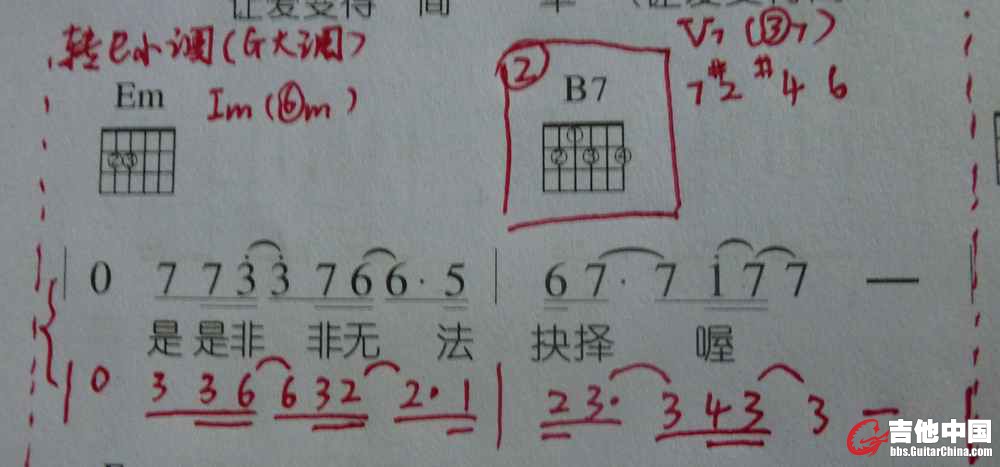 让爱变得 简 单 (让爱变得简
转e小调(G大调)
② V7 (③7)
Em Im(⑥m) B7 7 #2 #4 6
②③ ① ② ③ ④
| 0 7 7 3̇ 3̇ 7 6 6· 5 | 6 7· 7 1̇ 7 7 — |
是 是非 非无 法 抉择 喔
| 0 3 3 6 6 3 2 2· 1 | 2 3· 3 4 3 3 —
吉他中国
bbs.GuitarChina.com